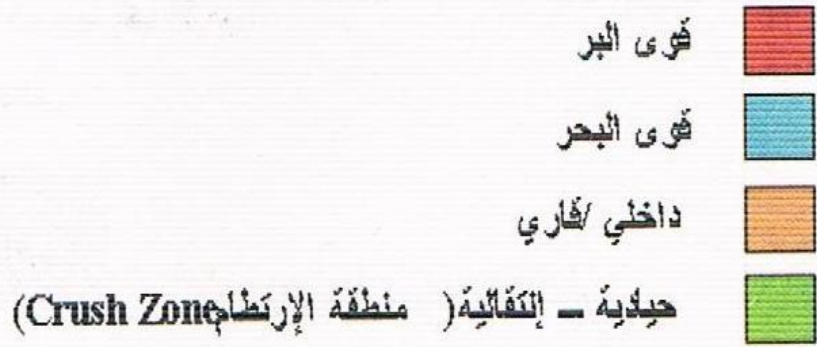 قوى البر
قوى البحر
داخلي /قاري
حيادية – إلتقائية( منطقة الإرتطام Crush Zone)